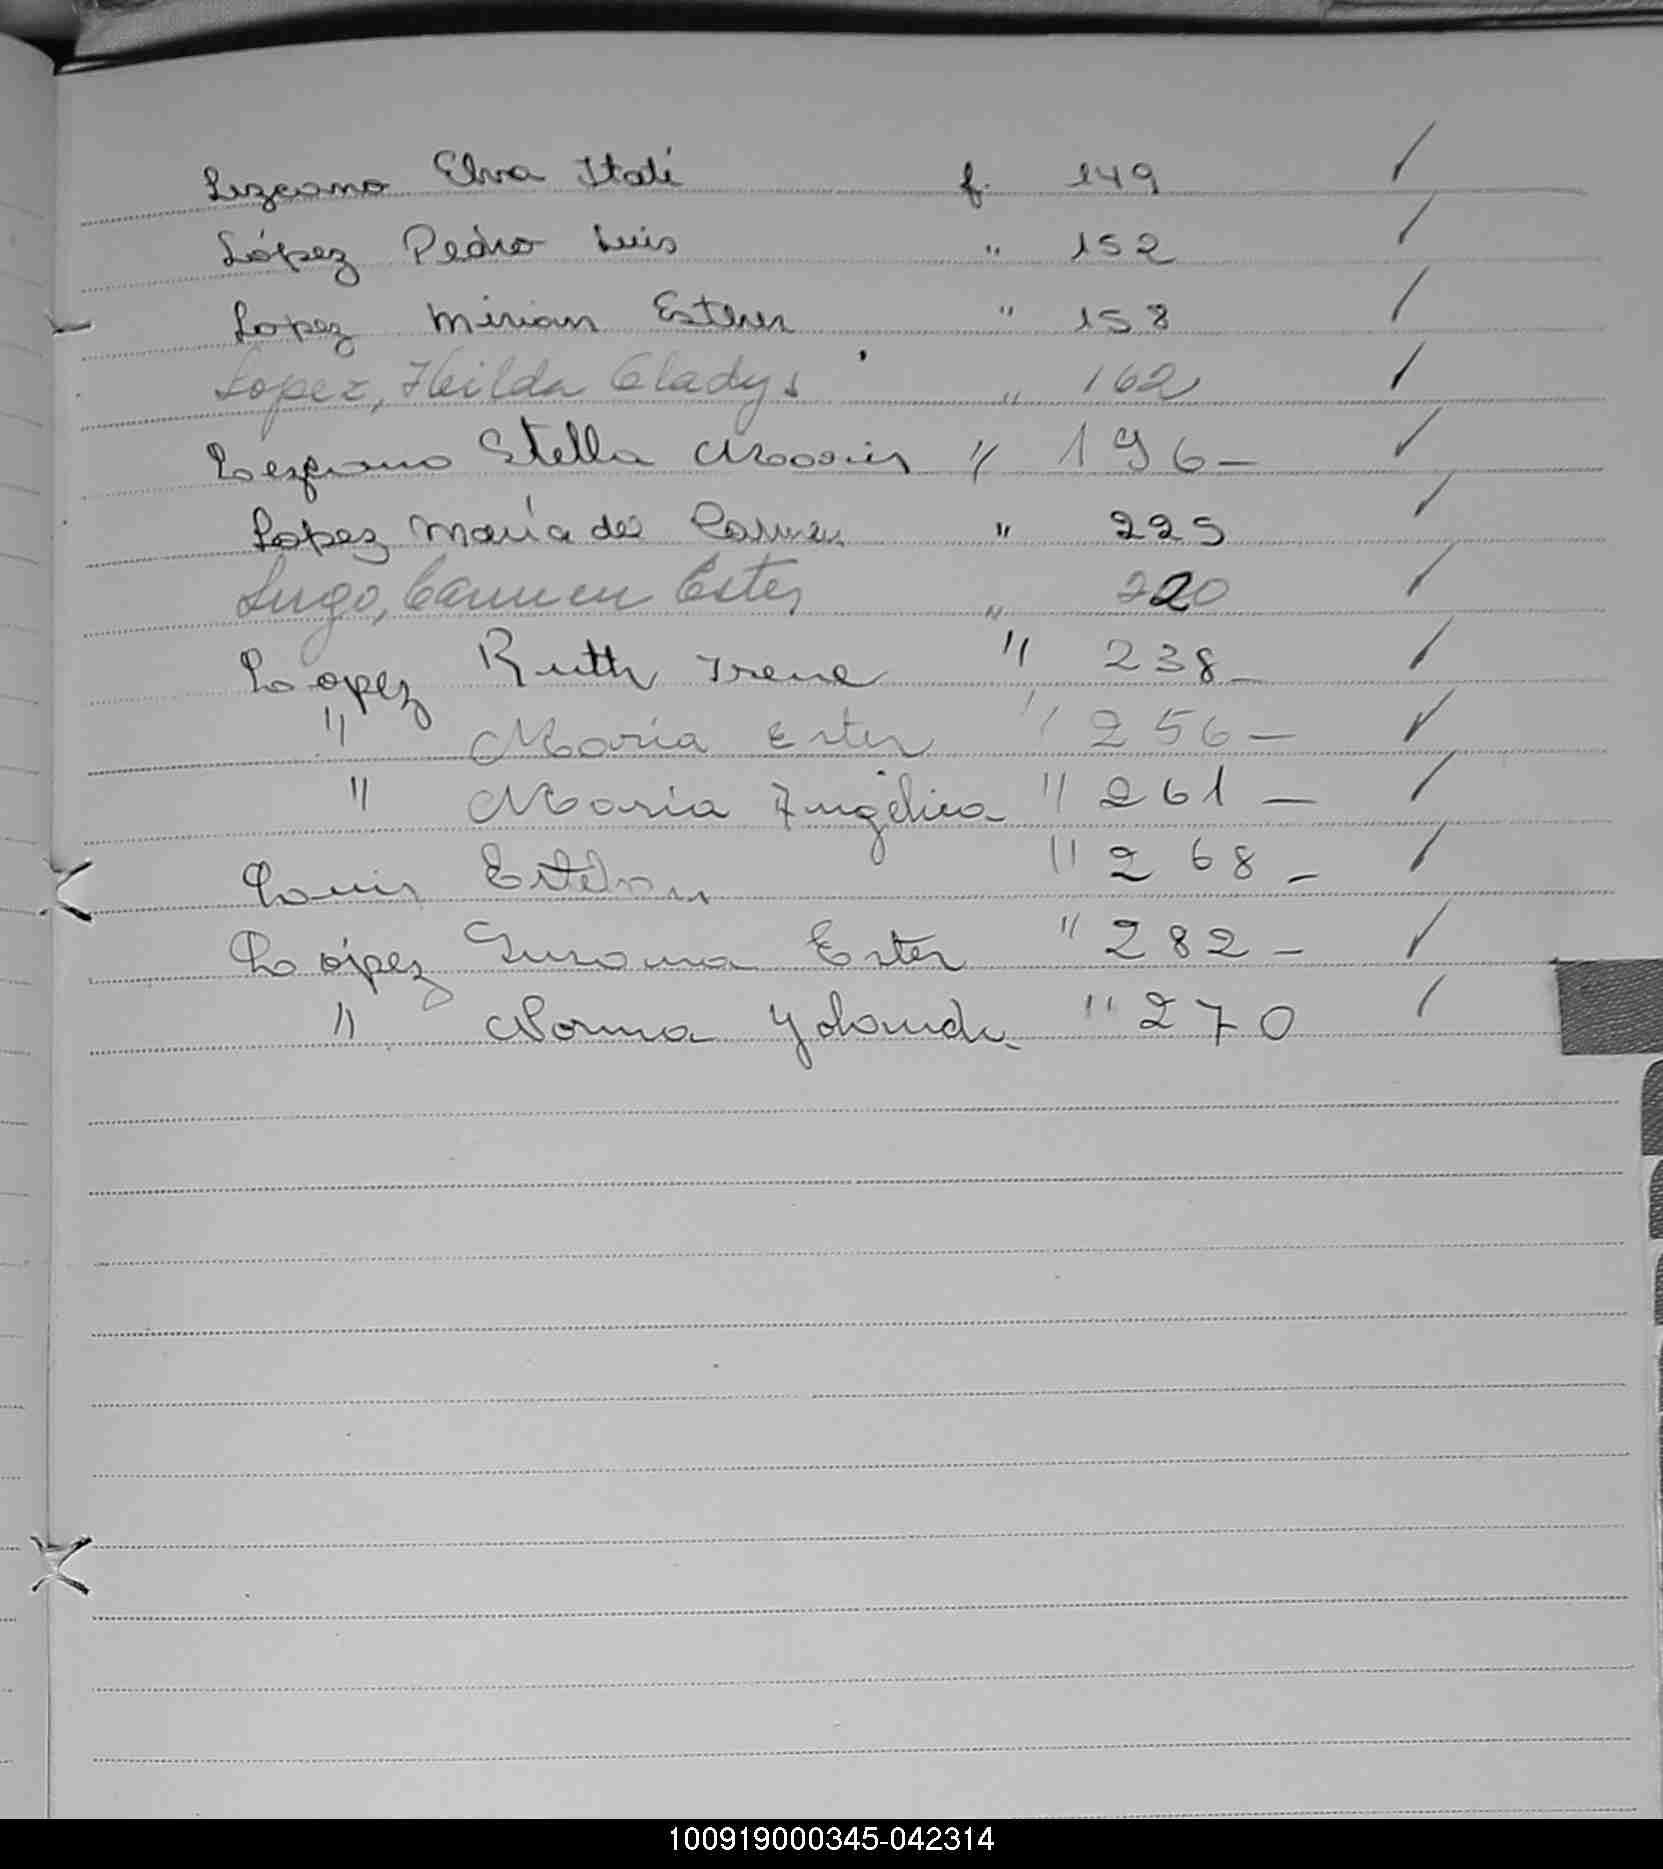 Lezcano Elva Itatí f. 149
López Pedro Luis " 152
Lopez Mirian Ester " 158
Lopez, Hilda Gladys " 162
Stella Maris " 196-
Lopez María del Carmen " 225
Lugo, Carmen Ester " 220
Lopez Ruth Irene " 238-
" María Ester " 256-
" María Angélica " 261-
Esteban " 268-
López Susana Ester " 282-
" Norma Yolanda " 270
100919000345-042314